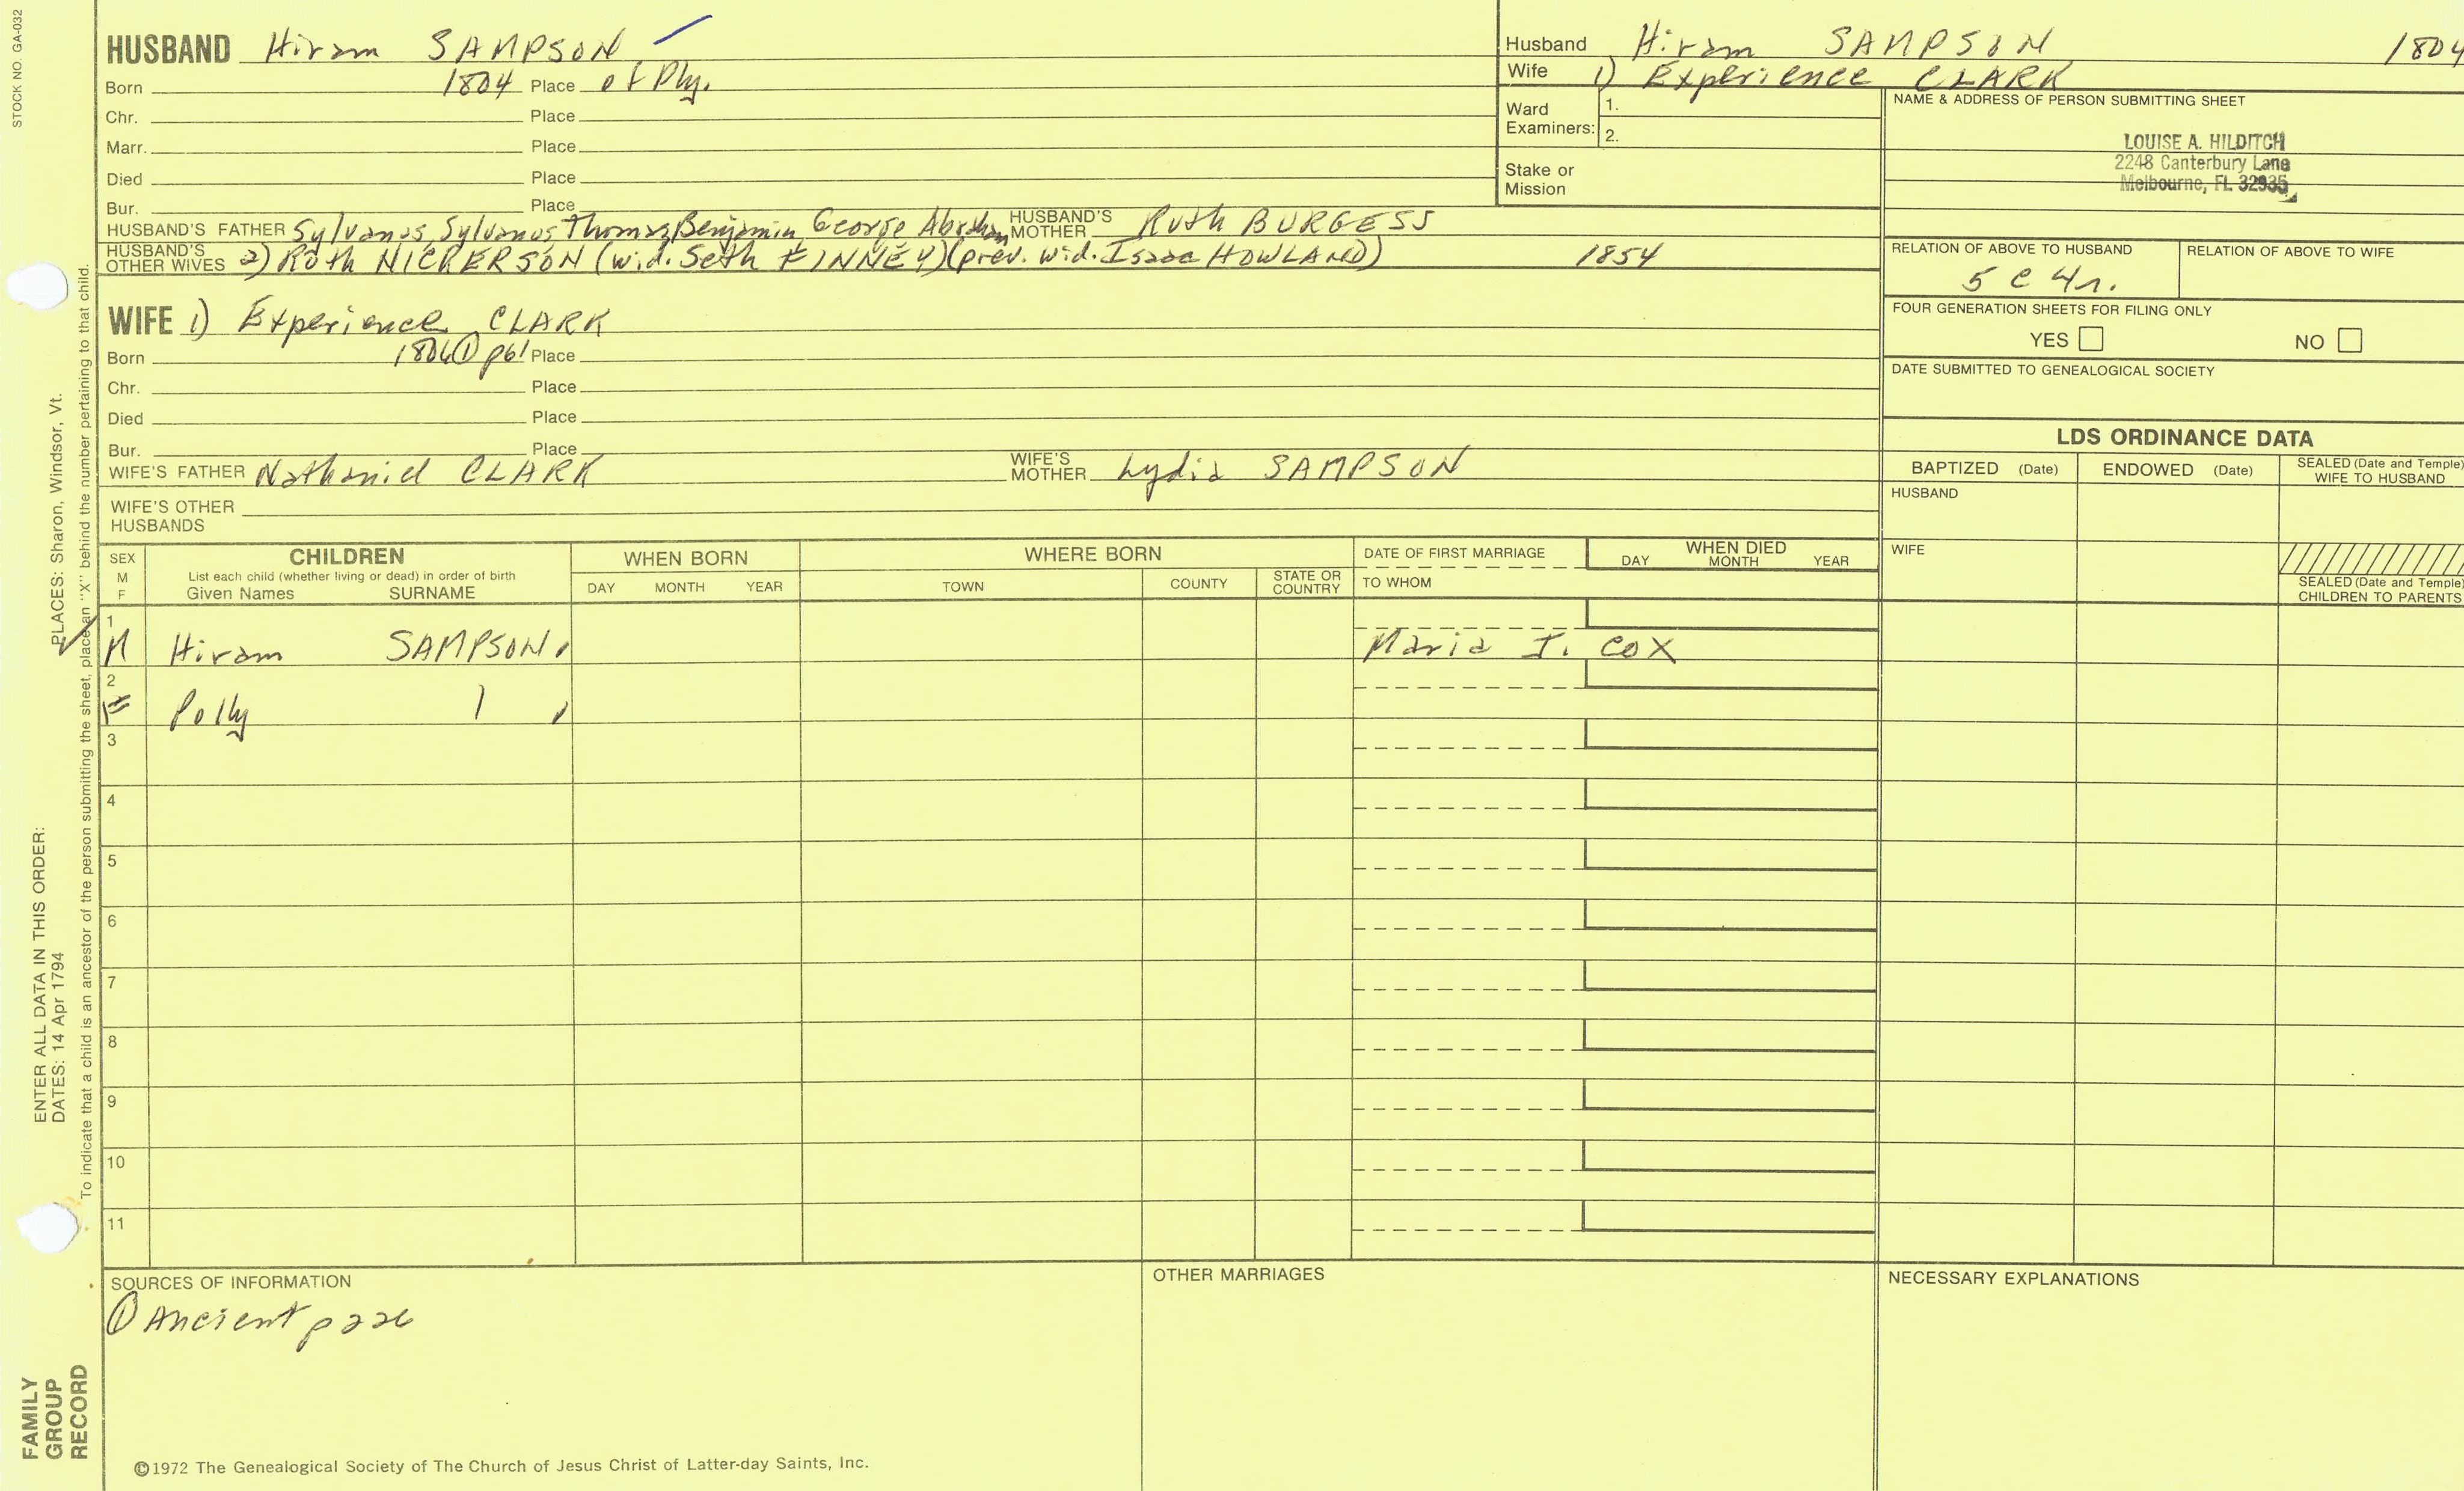 STOCK NO. GA-032
HUSBAND Hiram SAMPSON
Born 1804 Place of Ply.
Chr. Place
Marr. Place
Died Place
Bur. Place
HUSBAND'S FATHER Sylvanus, Sylvanus, Thomas, Benjamin, George Abraham HUSBAND'S MOTHER Ruth BURGESS
HUSBAND'S OTHER WIVES 2) Ruth NICKERSON (wid. Seth FINNEY) (prev. wid. Isaac HOWLAND) 1854
WIFE 1) Experience CLARK
Born 1806 ① p61 Place
Chr. Place
Died Place
Bur. Place
WIFE'S FATHER Nathaniel CLARK WIFE'S MOTHER Lydia SAMPSON
WIFE'S OTHER HUSBANDS
Husband Hiram SAMPSON 1804
Wife 1) Experience CLARK
Ward Examiners: 1.
2.
Stake or Mission
NAME & ADDRESS OF PERSON SUBMITTING SHEET
LOUISE A. HILDITCH
2248 Canterbury Lane
Melbourne, FL 32935
RELATION OF ABOVE TO HUSBAND RELATION OF ABOVE TO WIFE
5 C 4r.
FOUR GENERATION SHEETS FOR FILING ONLY
YES NO
DATE SUBMITTED TO GENEALOGICAL SOCIETY
LDS ORDINANCE DATA
BAPTIZED (Date) ENDOWED (Date) SEALED (Date and Temple) WIFE TO HUSBAND
HUSBAND
WIFE
SEALED (Date and Temple) CHILDREN TO PARENTS
SEX M F CHILDREN WHEN BORN WHERE BORN DATE OF FIRST MARRIAGE WHEN DIED
List each child (whether living or dead) in order of birth
Given Names SURNAME DAY MONTH YEAR TOWN COUNTY STATE OR COUNTRY TO WHOM DAY MONTH YEAR
1
M Hiram SAMPSON Maria I. COX
2
F Polly
3
4
5
6
7
8
9
10
11
SOURCES OF INFORMATION
① Ancient p 226
OTHER MARRIAGES
NECESSARY EXPLANATIONS
©1972 The Genealogical Society of The Church of Jesus Christ of Latter-day Saints, Inc.
FAMILY
GROUP
RECORD
ENTER ALL DATA IN THIS ORDER:
DATES: 14 Apr 1794 PLACES: Sharon, Windsor, Vt.
To indicate that a child is an ancestor of the person submitting the sheet, place an "X" behind the number pertaining to that child.